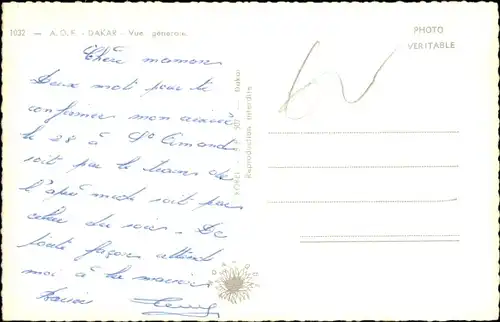 1032 — A.O.F. - DAKAR - Vue générale.
PHOTO
VERITABLE
Chère maman
Deux mot pour te
confirmer mon arrivée
le 28 à St Amand
soit par le train de
l'après midi soit par
celui du soir. De
toute façon attend
moi à la maison
Dakar
Reproduction interdite